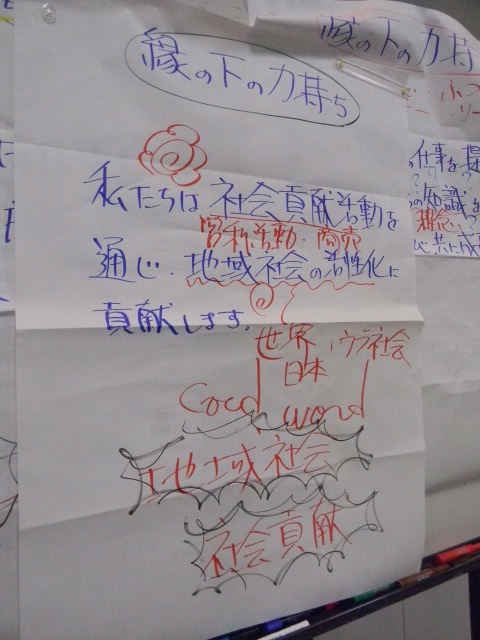 縁の下の力持ち
私たちは社会貢献活動を
営利活動・商売
通じ、地域社会の活性化に
貢献します。
世界、ウラ社会
日本
Good word
地域社会
社会貢献
縁の下の力持
の仕事を
の知識を